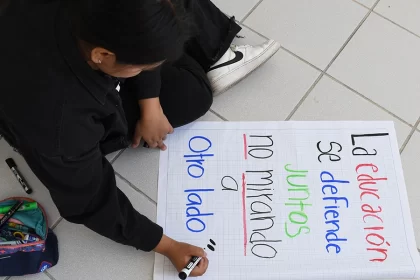 La educación
se defiende
juntos
no mirando
a
Otro lado"